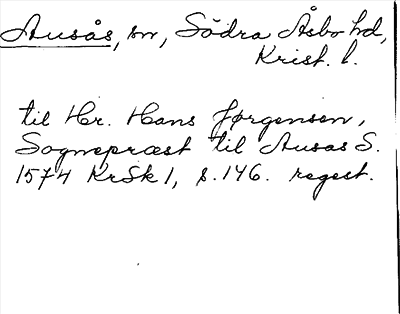 Ausås, sn, Södra Åsbo hd,
Krist. l.
til Hr. Hans Jørgensen,
Sognepræst til Ausas S.
1574 KrSk 1, s. 146. regest.